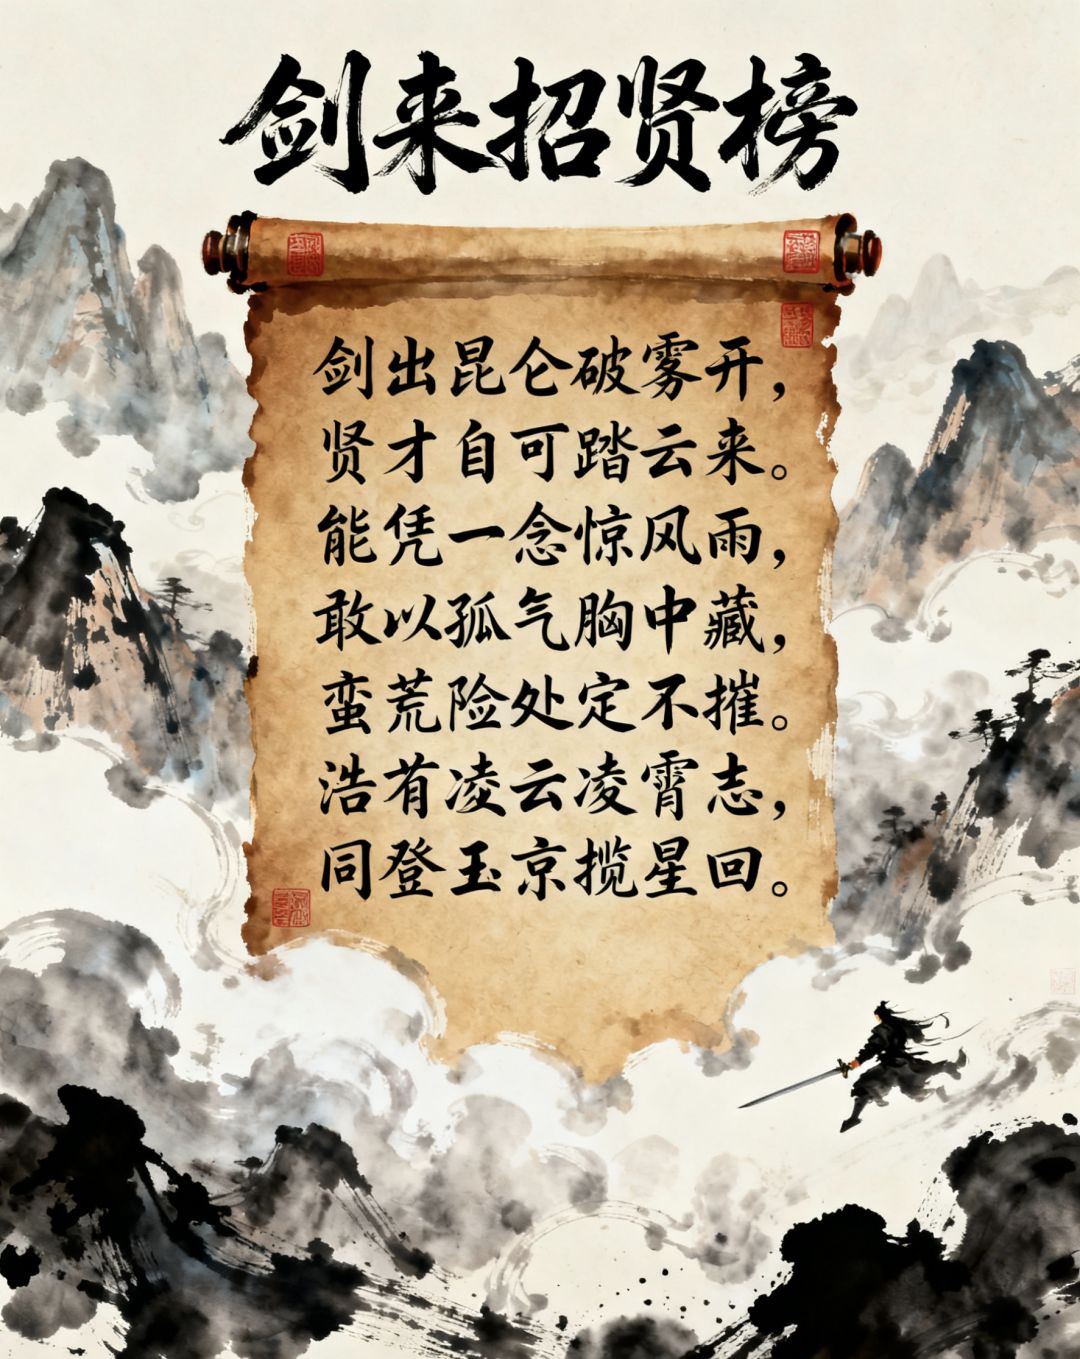 剑来招贤榜
剑出昆仑破雾开，
贤才自可踏云来。
能凭一念惊风雨，
敢以孤气胸中藏，
蛮荒险处定不摧。
浩有凌云凌霄志，
同登玉京揽星回。